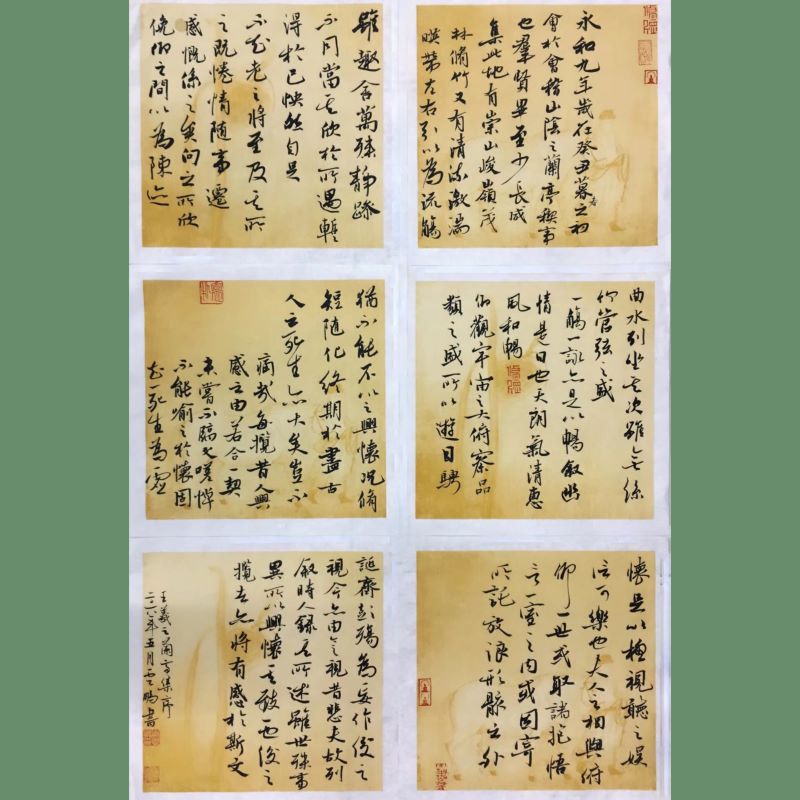 永和九年歲在癸丑暮春之初
會於會稽山陰之蘭亭禊事
也羣賢畢至少長咸
集此地有崇山峻嶺茂
林脩竹又有清流激湍
暎帶左右引以為流觴
曲水列坐其次雖無絲
竹管弦之盛
一觴一詠亦足以暢叙幽
情是日也天朗氣清惠
風和暢
仰觀宇宙之大俯察品
類之盛所以遊目騁
懷足以極視聽之娛
信可樂也夫人之相與俯
仰一世或取諸抱悟
言一室之内或因寄
所託放浪形骸之外
雖趣舍萬殊靜躁
不同當其欣於所遇暫
得於己快然自足
不知老之將至及其所
之既惓情隨事遷
感慨係之矣向之所欣
俛仰之間以為陳迹
猶不能不以之興懷況脩
短隨化終期於盡古
人云死生亦大矣豈不
痛哉每攬昔人興
感之由若合一契
未嘗不臨文嗟悼
不能喻之於懷固
知一死生為虛
誕齊彭殤為妄作後之
視今亦由今之視昔悲夫故列
叙時人錄其所述雖世殊事
異所以興懷其致一也後之
攬者亦將有感於斯文
王羲之蘭亭集序
年五月雲鵬書